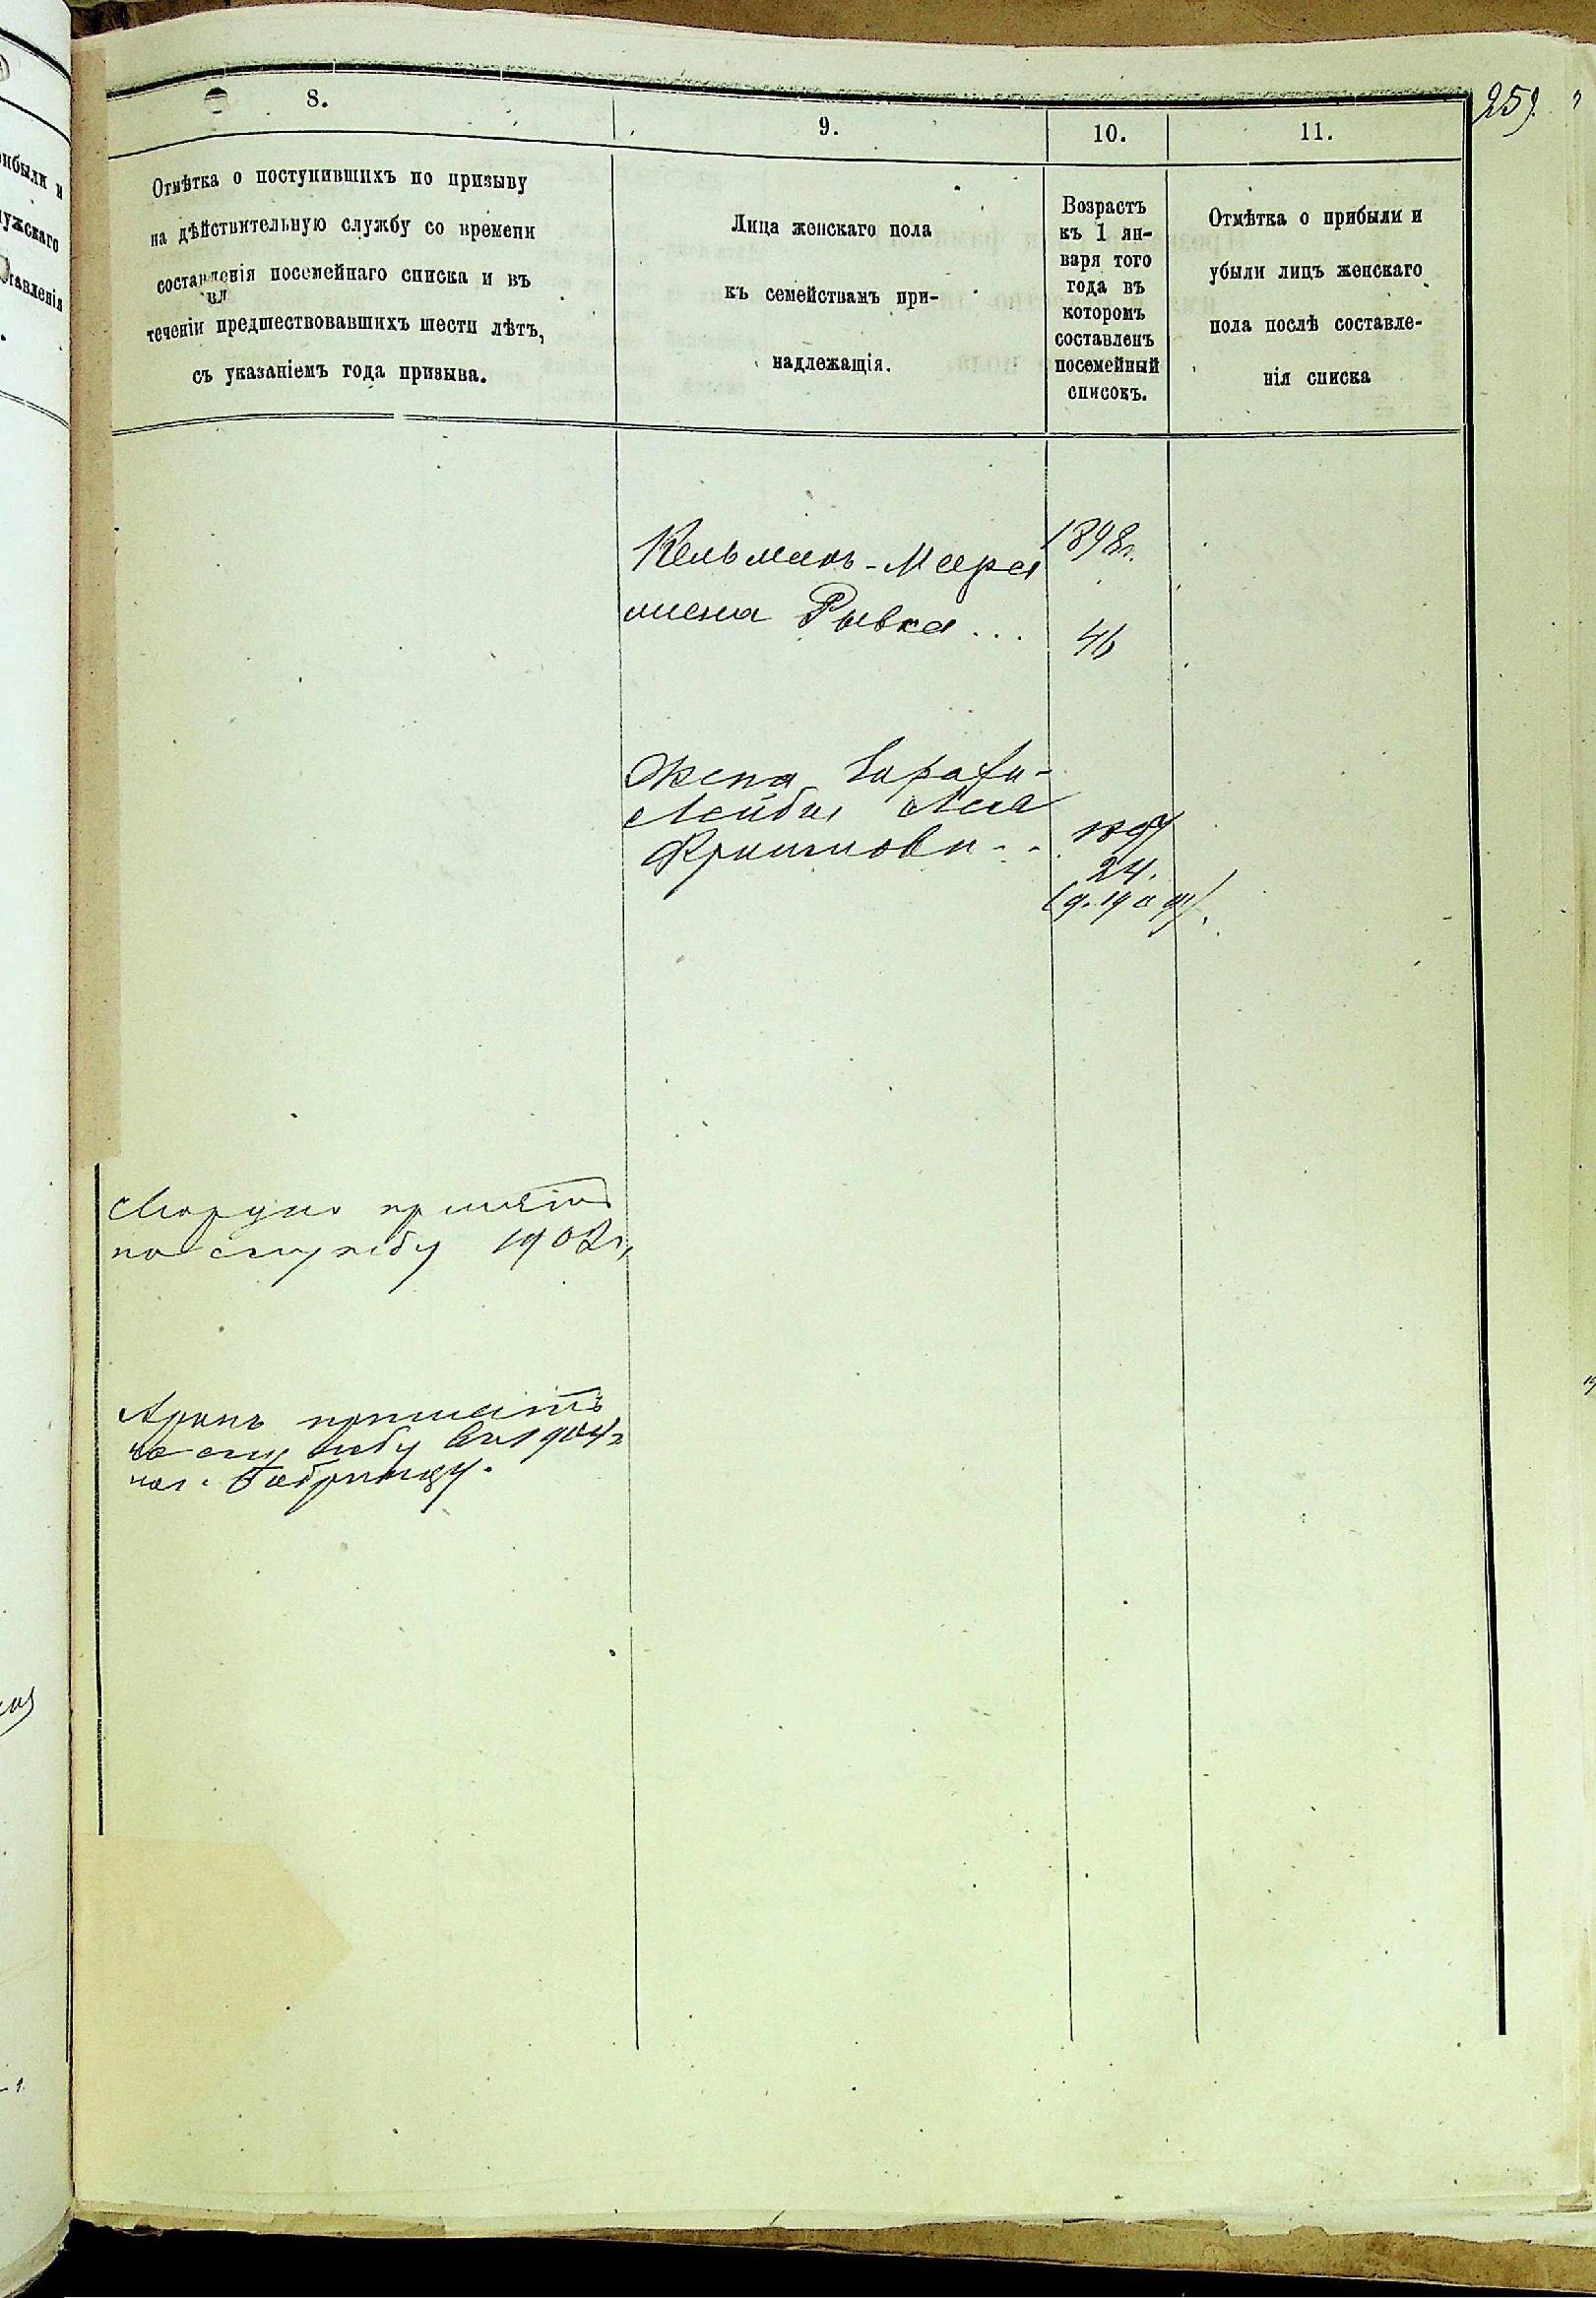 259
8.
9.
10.
11.
Отмѣтка о поступившихъ по призыву
на дѣйствительную службу со времени
составленія посемейнаго списка и въ
теченіи предшествовавшихъ шести лѣтъ,
съ указаніемъ года призыва.
Лица женскаго пола
къ семействамъ при-
надлежащія.
Возрастъ
къ 1 ян-
варя того
года въ
которомъ
составленъ
посемейный
списокъ.
Отмѣтка о прибыли и
убыли лицъ женскаго
пола послѣ составле-
нія списка
Кельманъ-Меера
жена Рывка...
1898г.
46
Жена
Лейбы
24.
Мордко принятъ
на службу 1902г.
Аронъ принятъ
на службу 1904г